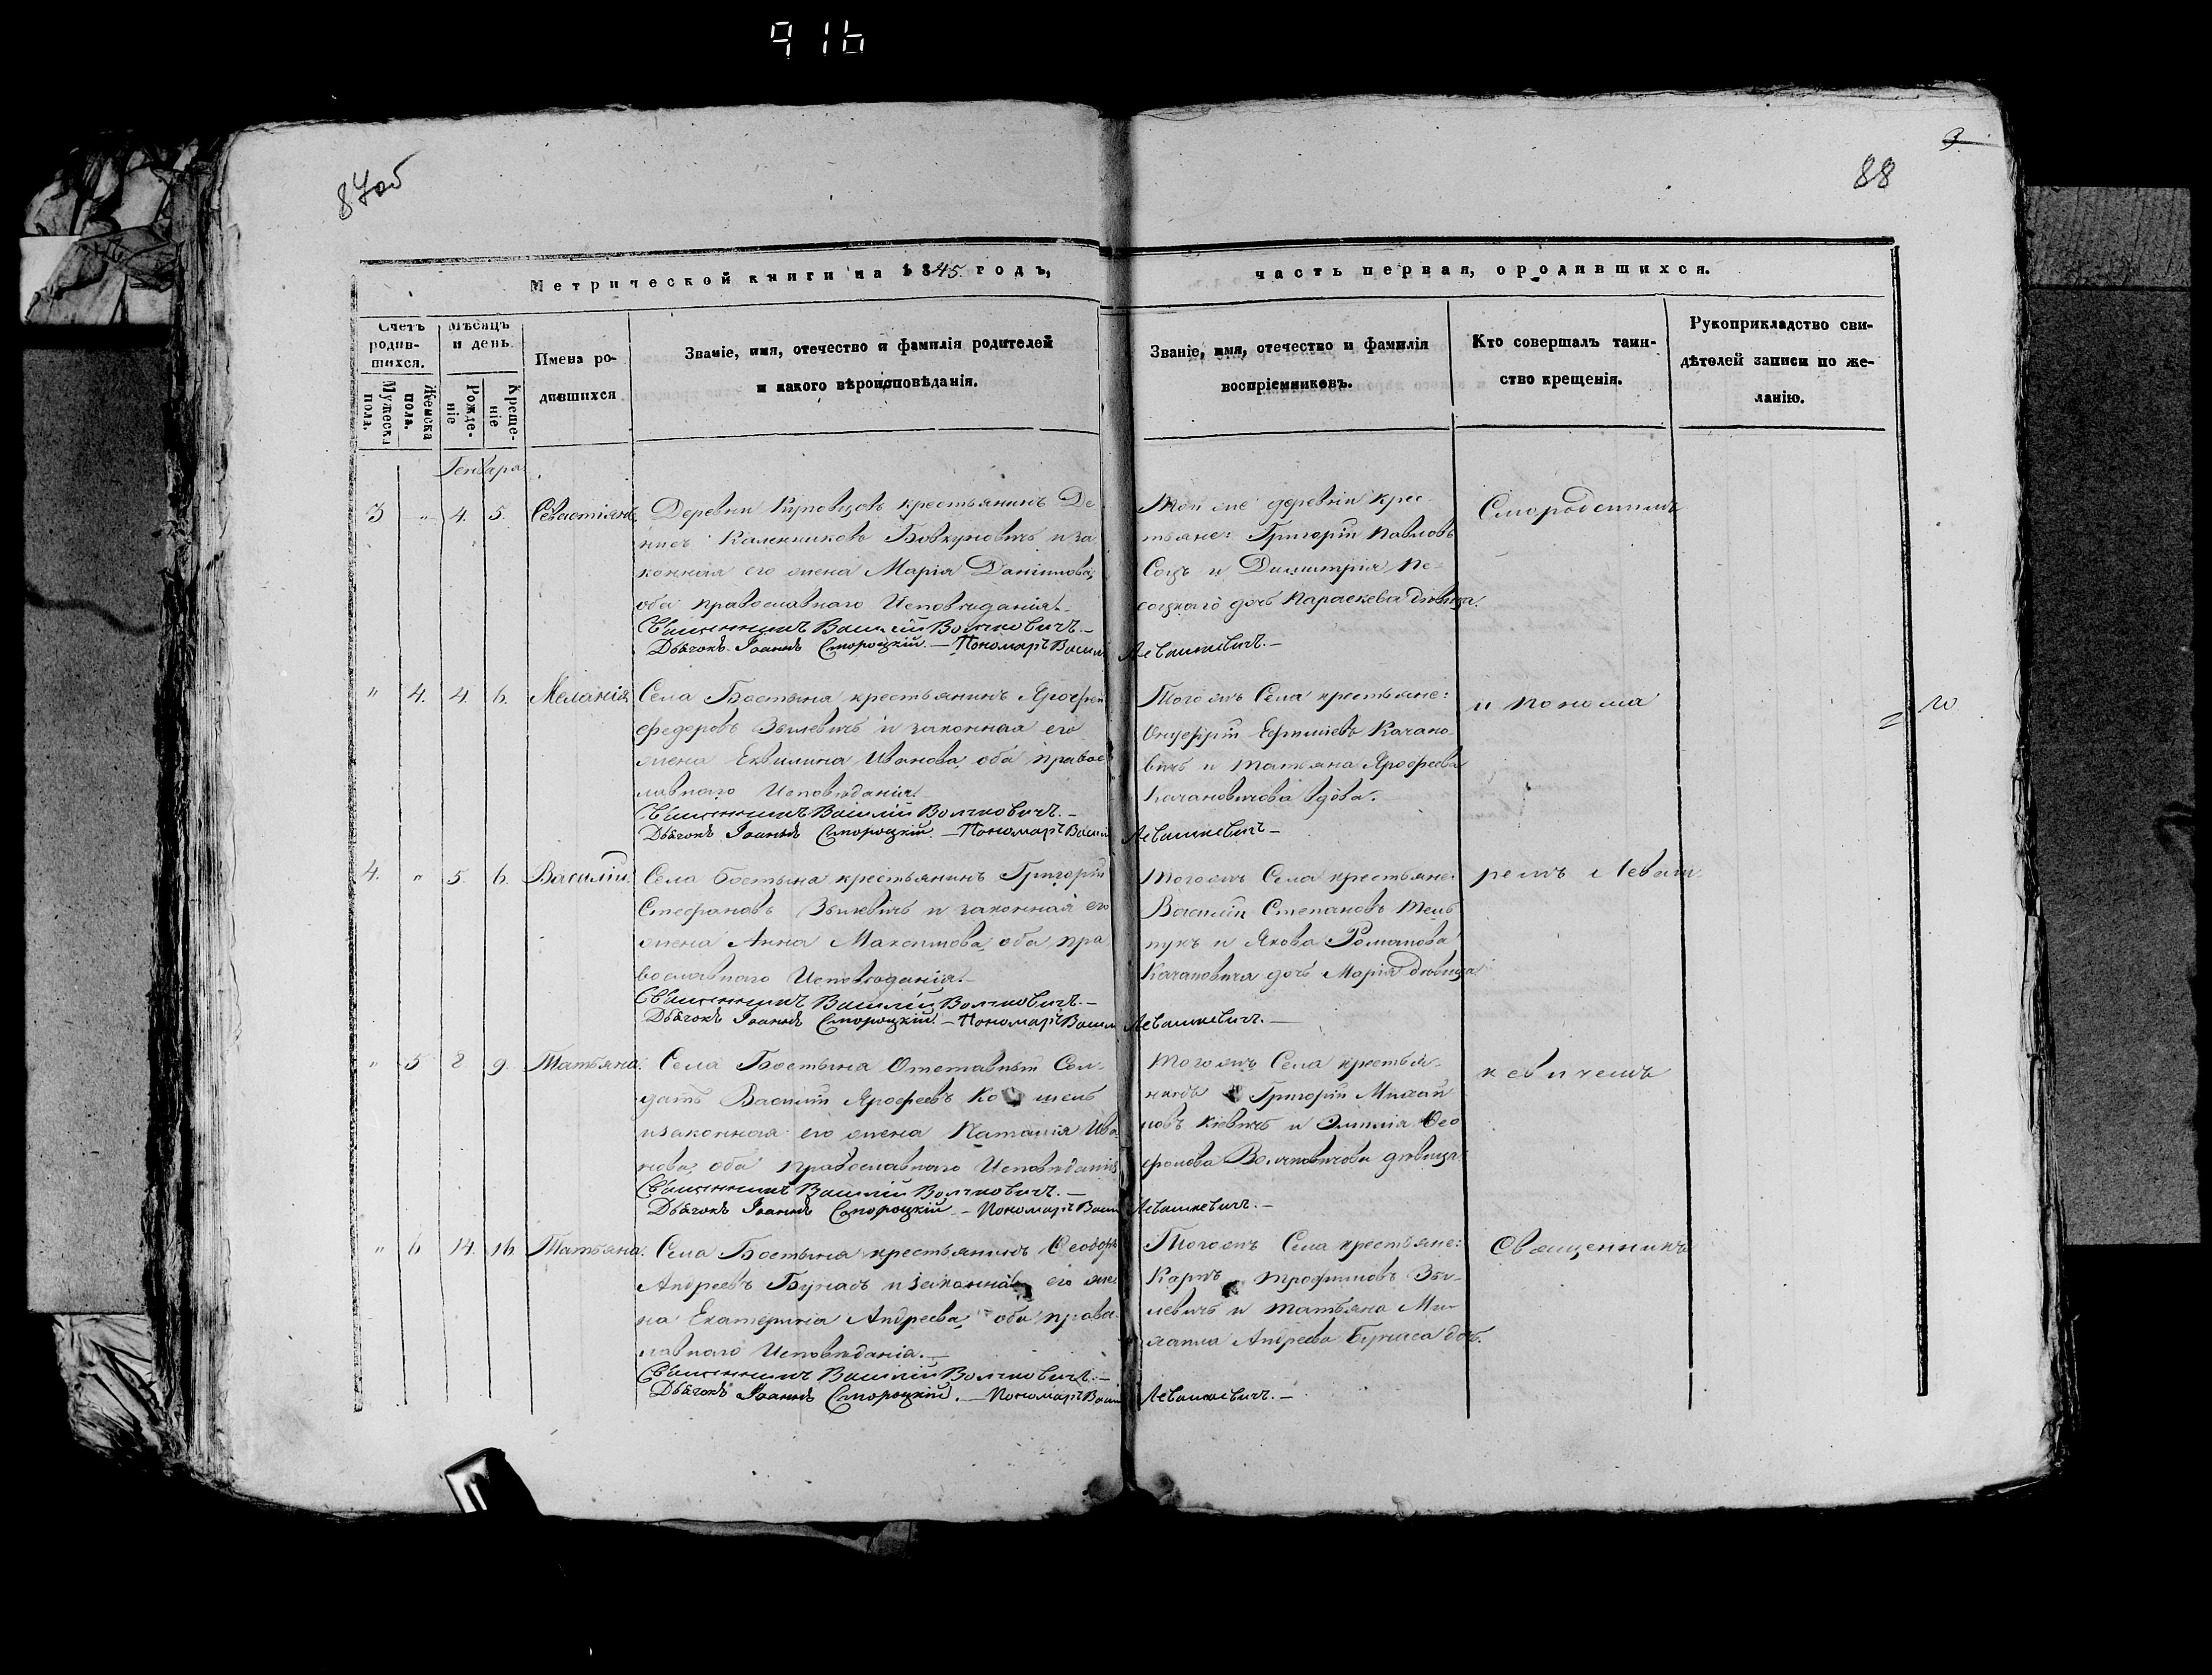 916
87об
88
9
Метрической книги на 1845 годъ,
часть первая, о родившихся.
Счетъ родив-шихся.
Мужеска пола.
Женска пола.
Мѣсяцъ и день.
Рожде-ніе
Креще-ніе
Имена ро-
дившихся
Званіе, имя, отечество и фамилія родителей
и какого вѣроисповѣданія.
Званіе, имя, отечество и фамилія
воспріемниковъ.
Кто совершалъ таин-
ство крещенія.
Рукоприкладство сви-
дѣтелей записи по же-
ланію.
Генваря
3 " 4. 5. Севастіянъ
Деревни крестьянинъ Де
нисъ Калениковъ Бовкуновичъ и за
конная его жена Марія Даніилова,
оба православнаго Исповѣданія.
Священникъ Василій Волчковичъ.—
Дьячокъ Іоаннъ Смороцкій.—Пономарь Васил Левашкевичъ.—
Той же деревни крес-
тьяне: Григорій Павловъ
и Димитрія Пе-
соцкаго дочь Параскева дѣвица.
" 4. 4. 6. Меланія
Села Бостыня крестьянинъ Ярофей
Федоровъ Зылевичъ и законная его
жена Иванова, оба правос
лавнаго Исповѣданія.
Священникъ Василій Волчковичъ.—
Дьячокъ Іоаннъ Смороцкій.—Пономарь Васил Левашкевичъ—
Тогожъ Села крестьяне:
Онуфрій Ефимовъ Качано
вичъ и Татьяна Ярофеева
Качановичова вдова.
и понома
10
4. " 5. 6. Василій.
Села Бостыня крестьянинъ Григорій
Стефановъ Зылевичъ и законная его
жена Анна Максимова, оба пра
вославнаго Исповѣданія.
Священникъ Василій Волчковичъ.—
Дьячокъ Іоаннъ Смороцкій—Пономарь Васил Левашкевичъ.—
Тогожъ Села крестьяне:
Василій Степановъ Тель
пукъ и Якова Романова
Качановича дочь Марія дѣвица
ремъ Леваш
" 5 8. 9. Татьяна.
Села Бостыня Отставный Сол-
датъ Василій Ярофеевъ
и законная его жена Наталія Ива
нова, оба православнаго Исповѣданія
Священникъ Василій Волчковичъ.—
Дьячокъ Іоаннъ Смороцкій—Пономарь Васил Левашкевичъ.—
Тогожъ Села крестья-
нинъ Григорій Михай
ловъ и Эмилія Фео
фонова Волчковичова дѣвица
кевичемъ
" 6 14. 16. Татьяна.
Села Бостыня крестьянинъ Феодоръ
Андреевъ Бунасъ и законная его же
на Екатерина Андреева, оба правос
лавнаго Исповѣданія.—
Священникъ Василій Волчковичъ.—
Дьячокъ Іоаннъ Смороцкій.—Пономарь Васил Левашкевичъ.—
Тогожъ Села крестьяне:
Карпъ Трофимовъ Зы-
левичъ и Татьяна Ми-
хаила Андреева Бунаса доч.
Священникъ